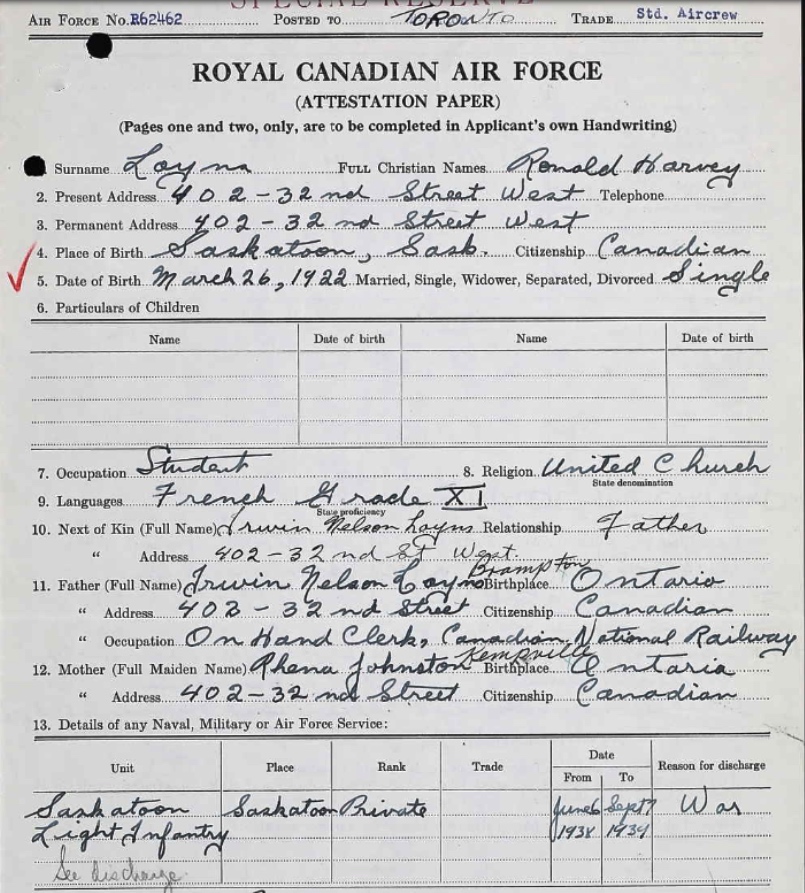 SPECIAL RESERVE
AIR FORCE No. R62462 POSTED TO TORONTO TRADE Std. Aircrew
ROYAL CANADIAN AIR FORCE
(ATTESTATION PAPER)
(Pages one and two, only, are to be completed in Applicant's own Handwriting)
Surname Loyns FULL Christian Names Ronald Harvey
2. Present Address 402-32nd Street West Telephone
3. Permanent Address 402-32nd Street West
4. Place of Birth Saskatoon, Sask. Citizenship Canadian
5. Date of Birth March 26, 1922 Married, Single, Widower, Separated, Divorced Single
6. Particulars of Children
Name Date of birth Name Date of birth
7. Occupation Student 8. Religion United Church
State denomination
9. Languages French Grade XI
State proficiency
10. Next of Kin (Full Name) Irwin Nelson Loyns Relationship Father
" Address 402-32nd St West
Brampton
11. Father (Full Name) Irwin Nelson Loyns Birthplace Ontario
" Address 402-32nd Street Citizenship Canadian
" Occupation On Hand Clerk, Canadian National Railway
12. Mother (Full Maiden Name) Rhena Johnston Birthplace Ontario
" Address 402-32nd Street Citizenship Canadian
13. Details of any Naval, Military or Air Force Service:
Date
Unit Place Rank Trade From To Reason for discharge
Saskatoon Saskatoon Private June 6 Sept 7 War
Light Infantry 1938 1939
See discharge